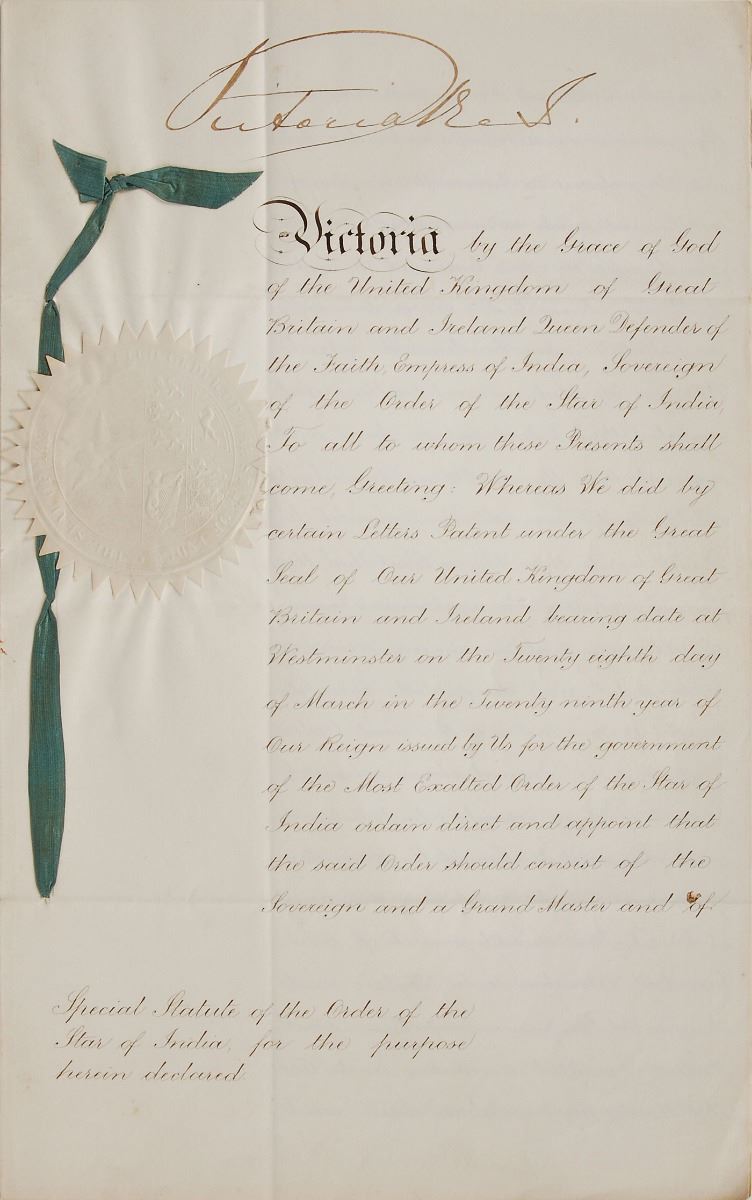 Victoria R & I.
Victoria by the Grace of God
of the United Kingdom of Great
Britain and Ireland Queen Defender of
the Faith, Empress of India, Sovereign
of the Order of the Star of India,
To all to whom these Presents shall
come, Greeting: Whereas We did by
certain Letters Patent under the Great
Seal of Our United Kingdom of Great
Britain and Ireland bearing date at
Westminster on the Twenty eighth day
of March in the Twenty ninth year of
Our Reign issued by Us for the government
of the Most Exalted Order of the Star of
India ordain direct and appoint that
the said Order should consist of the
Sovereign and a Grand Master and of
Special Statute of the Order of the
Star of India, for the purpose
herein declared.